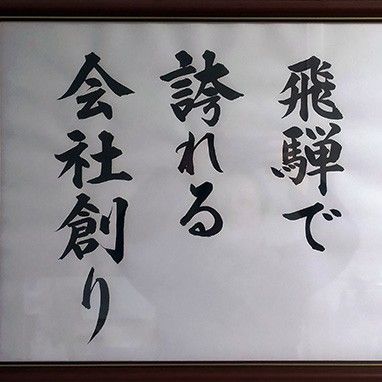 飛騨で
誇れる
会社創り